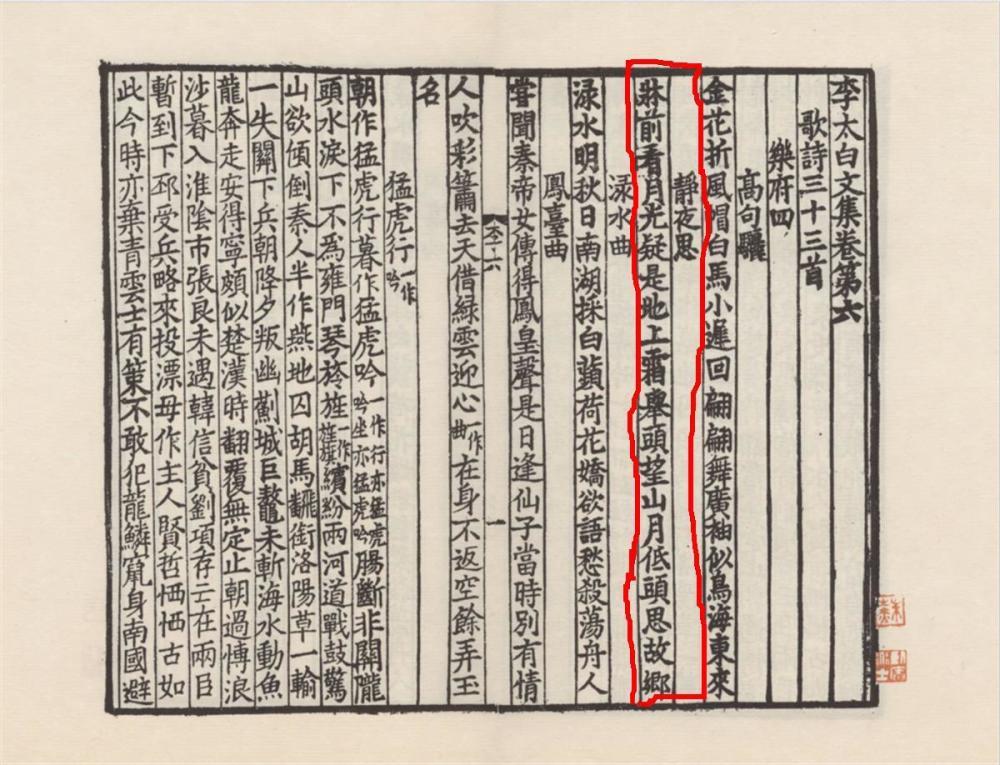 李太白文集卷第六
歌詩三十三首
樂府四
高句驪
金花折風帽白馬小遲回翩翩舞廣袖似鳥海東來
靜夜思
牀前看月光疑是地上霜舉頭望山月低頭思故鄉
渌水曲
渌水明秋日南湖採白蘋荷花嬌欲語愁殺蕩舟人
鳳臺曲
嘗聞秦帝女傳得鳳皇聲是日逢仙子當時別有情
人吹彩簫去天借緑雲迎心一作曲在身不返空餘弄玉
名
猛虎行一作吟
朝作猛虎行暮作猛虎吟一作行亦猛虎吟坐亦猛虎吟腸斷非關隴
頭水淚下不為雍門琴旌一作旌旗繽紛兩河道戰鼓驚
山欲傾倒秦人半作燕地囚胡馬翻銜洛陽草一輸
一失關下兵朝降夕叛幽薊城巨鼇未斬海水動魚
龍奔走安得寧頗似楚漢時翻覆無定止朝過博浪
沙暮入淮陰市張良未遇韓信貧劉項存亡在兩臣
暫到下邳受兵略來投漂母作主人賢哲栖栖古如
此今時亦棄青雲士有策不敢犯龍鱗竄身南國避